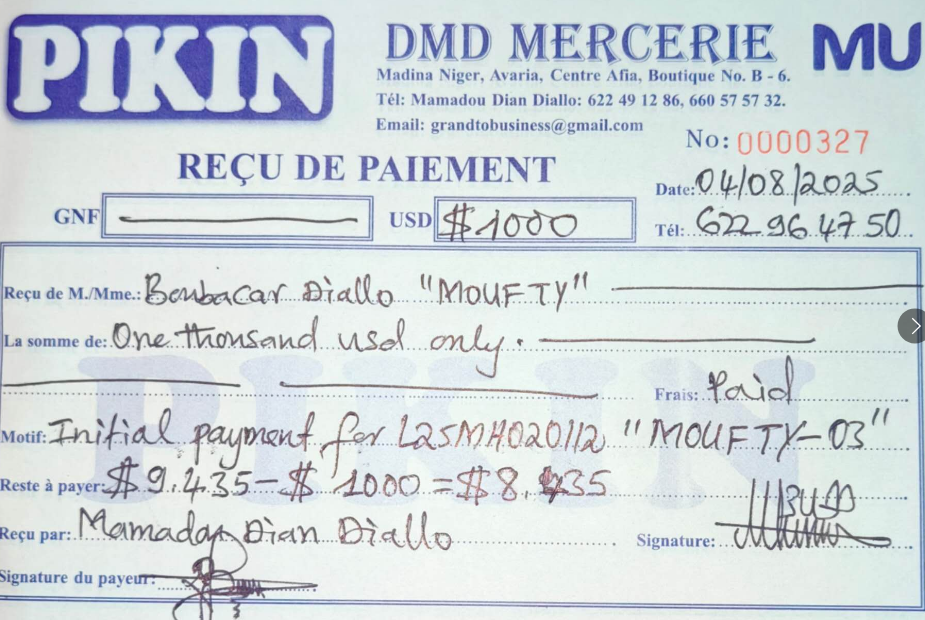 PIKIN
DMD MERCERIE
MU
Madina Niger, Avaria, Centre Afia, Boutique No. B - 6.
Tél: Mamadou Dian Diallo: 622 49 12 86, 660 57 57 32.
Email: grandtobusiness@gmail.com
No: 0000327
REÇU DE PAIEMENT
Date: 04/08/2025
GNF
USD $1000
Tél: 622 96 47 50
Reçu de M./Mme.: Boubacar Diallo "MOUFTY"
La somme de: One thousand usd only.
Frais: Paid
Motif: Initial payment for L25MH020112 "MOUFTY-03"
Reste à payer: $9.435-$ 1000 = $8.435
Reçu par: Mamadou Dian Diallo
Signature:
Signature du payeur:
PIKIN